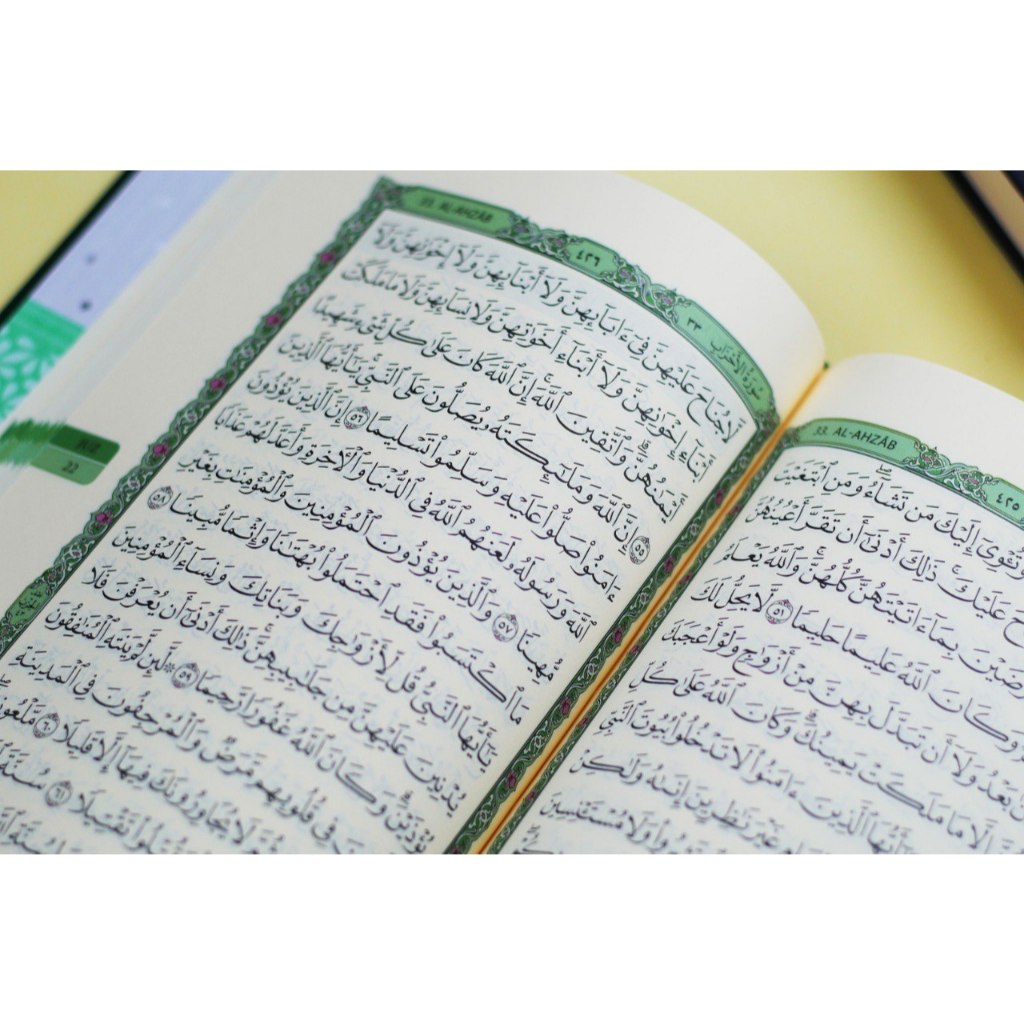 33. AL-AHZĀB ٤٢٥
وَتُـْٔوِىٓ إِلَيْكَ مَن تَشَآءُۖ وَمَنِ ٱبْتَغَيْتَ
عَلَيْكَۚ ذَٰلِكَ أَدْنَىٰٓ أَن تَقَرَّ أَعْيُنُهُنَّ
بِمَآ ءَاتَيْتَهُنَّ كُلُّهُنَّۚ وَٱللَّهُ يَعْلَمُ
وَكَانَ ٱللَّهُ عَلِيمًا حَلِيمًا ٥١ لَّا يَحِلُّ لَكَ
بَعْدُ وَلَآ أَن تَبَدَّلَ بِهِنَّ مِنْ أَزْوَٰجٍ وَلَوْ أَعْجَبَكَ
إِلَّا مَا مَلَكَتْ يَمِينُكَۗ وَكَانَ ٱللَّهُ عَلَىٰ كُلِّ
يَٰٓأَيُّهَا ٱلَّذِينَ ءَامَنُوا۟ لَا تَدْخُلُوا۟ بُيُوتَ ٱلنَّبِىِّ
غَيْرَ نَٰظِرِينَ إِنَىٰهُ وَلَٰكِنْ
وَلَا مُسْتَـْٔنِسِينَ
سُورَةُ الأَحْزَابِ ٣٣ ٤٢٦ 33. AL-AHZĀB
لَّا جُنَاحَ عَلَيْهِنَّ فِىٓ ءَابَآئِهِنَّ وَلَآ أَبْنَآئِهِنَّ وَلَآ إِخْوَٰنِهِنَّ وَلَآ
أَبْنَآءِ إِخْوَٰنِهِنَّ وَلَآ أَبْنَآءِ أَخَوَٰتِهِنَّ وَلَا نِسَآئِهِنَّ وَلَا مَا مَلَكَتْ
أَيْمَٰنُهُنَّۗ وَٱتَّقِينَ ٱللَّهَۚ إِنَّ ٱللَّهَ كَانَ عَلَىٰ كُلِّ شَىْءٍ شَهِيدًا
٥٥ إِنَّ ٱللَّهَ وَمَلَٰٓئِكَتَهُۥ يُصَلُّونَ عَلَى ٱلنَّبِىِّۚ يَٰٓأَيُّهَا ٱلَّذِينَ
ءَامَنُوا۟ صَلُّوا۟ عَلَيْهِ وَسَلِّمُوا۟ تَسْلِيمًا ٥٦ إِنَّ ٱلَّذِينَ يُؤْذُونَ
ٱللَّهَ وَرَسُولَهُۥ لَعَنَهُمُ ٱللَّهُ فِى ٱلدُّنْيَا وَٱلْءَاخِرَةِ وَأَعَدَّ لَهُمْ عَذَابًا
مُّهِينًا ٥٧ وَٱلَّذِينَ يُؤْذُونَ ٱلْمُؤْمِنِينَ وَٱلْمُؤْمِنَٰتِ بِغَيْرِ
مَا ٱكْتَسَبُوا۟ فَقَدِ ٱحْتَمَلُوا۟ بُهْتَٰنًا وَإِثْمًا مُّبِينًا ٥٨
يَٰٓأَيُّهَا ٱلنَّبِىُّ قُل لِّأَزْوَٰجِكَ وَبَنَاتِكَ وَنِسَآءِ ٱلْمُؤْمِنِينَ
يُدْنِينَ عَلَيْهِنَّ مِن جَلَٰبِيبِهِنَّۚ ذَٰلِكَ أَدْنَىٰٓ أَن يُعْرَفْنَ فَلَا
يُؤْذَيْنَۗ وَكَانَ ٱللَّهُ غَفُورًا رَّحِيمًا ٥٩ ۞ لَّئِن لَّمْ يَنتَهِ ٱلْمُنَٰفِقُونَ
فِى قُلُوبِهِم مَّرَضٌ وَٱلْمُرْجِفُونَ فِى ٱلْمَدِينَةِ
لَا يُجَاوِرُونَكَ فِيهَآ إِلَّا قَلِيلًا ٦٠ مَّلْعُونِينَ
تَقْتِيلًا ٦١ سُنَّةَ
22